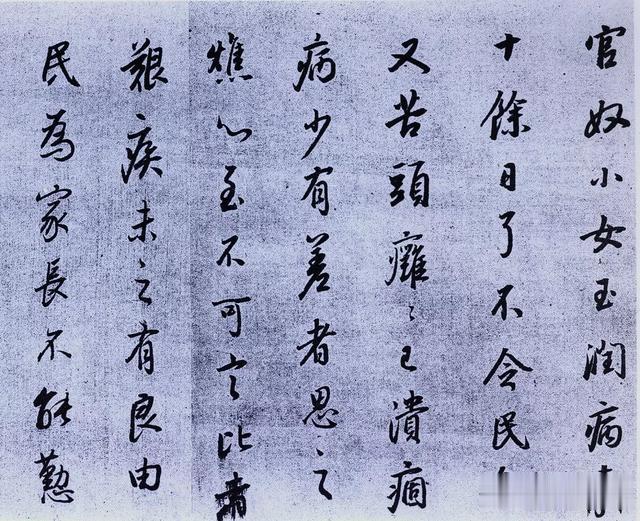 官奴小女玉潤病
十餘日了不令民
又苦頭癰〻已潰痼
病少有差者思之
燋心至不可言比
艱疾未之有良由
民為家長不能懃